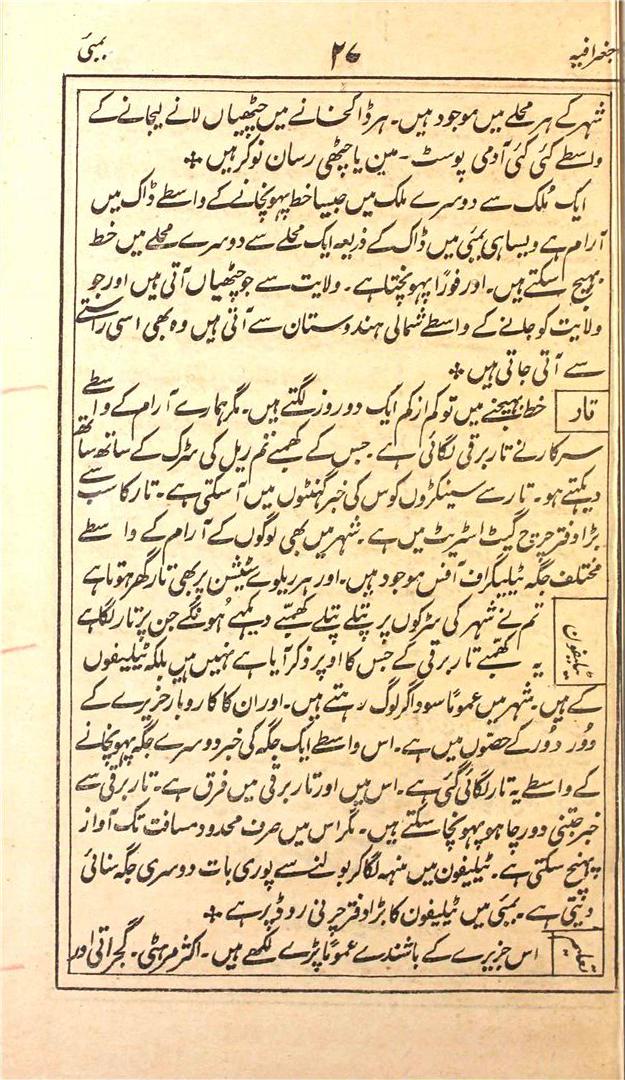 جغرافیہ ۲۷ بمبئی
شہر کے ہر محلے میں موجود ہیں۔ ہر ڈاکخانے میں چٹھیاں لانے لیجانے کے
واسطے کئی کئی آدمی پوسٹ۔ مین یا چٹھی رسان نوکر ہیں ✤
ایک مُلک سے دوسرے ملک میں جیسا خط پہونچانے کے واسطے ڈاک میں
آرام ہے ویسا ہی بمبئی میں ڈاک کے ذریعہ ایک محلے سے دوسرے محلے میں خط
بھیج سکتے ہیں۔ اور فورًا پہونچتا ہے۔ ولایت سے جو چٹھیاں آتی ہیں اور جو
ولایت کو جانے کے واسطے شمالی ہندوستان سے آتی ہیں وہ بھی اسی راستے
سے آتی جاتی ہیں ✤
تار خط بھیجنے میں تو کم از کم ایک دو روز لگتے ہیں۔ مگر ہمارے آرام کے واسطے
سرکار نے تار برقی لگائی ہے۔ جس کے کھمبے تم ریل کی سڑک کے ساتھ ساتھ
دیکھتے ہو۔ تار سے سینکڑوں کوس کی خبر گھنٹوں میں آ سکتی ہے۔ تار کا سب سے
بڑا دفتر چرچ گیٹ اسٹریٹ میں ہے۔ شہر میں بھی لوگوں کے آرام کے واسطے
مختلف جگہ ٹیلیگراف آفس موجود ہیں۔ اور ہر ریلوے سٹیشن پر بھی تار گھر ہوتا ہے
ٹیلیفون تم نے شہر کی سڑکوں پر پتلے پتلے کھمبے دیکھے ہُونگے جن پر تار لگا ہے
یہ کھمبے تار برقی کے جس کا اوپر ذکر آیا ہے نہیں ہیں بلکہ ٹیلیفون
کے ہیں۔ شہر میں عمومًا سوداگر لوگ رہتے ہیں۔ اور ان کا کاروبار جزیرے کے
دُور دُور کے حصّوں میں ہے۔ اس واسطے ایک جگہ کی خبر دوسرے جگہ پہونچانے
کے واسطے یہ تار لگائی گئی ہے۔ اس میں اور تار برقی میں فرق ہے۔ تار برقی سے
خبر جتنی دور چاہو پہونچا سکتے ہیں۔ مگر اس میں صرف محدود مسافت تک آواز
پہنچ سکتی ہے۔ ٹیلیفون میں منہہ لگا کر بولنے سے پوری بات دوسری جگہ سنائی
دیتی ہے۔ بمبئی میں ٹیلیفون کا بڑا دفتر چرنی روڈ پر ہے ✤
تعلیم اس جزیرے کے باشندے عمومًا پڑے لکھے ہیں۔ اکثر مرہٹی۔ گجراتی اور